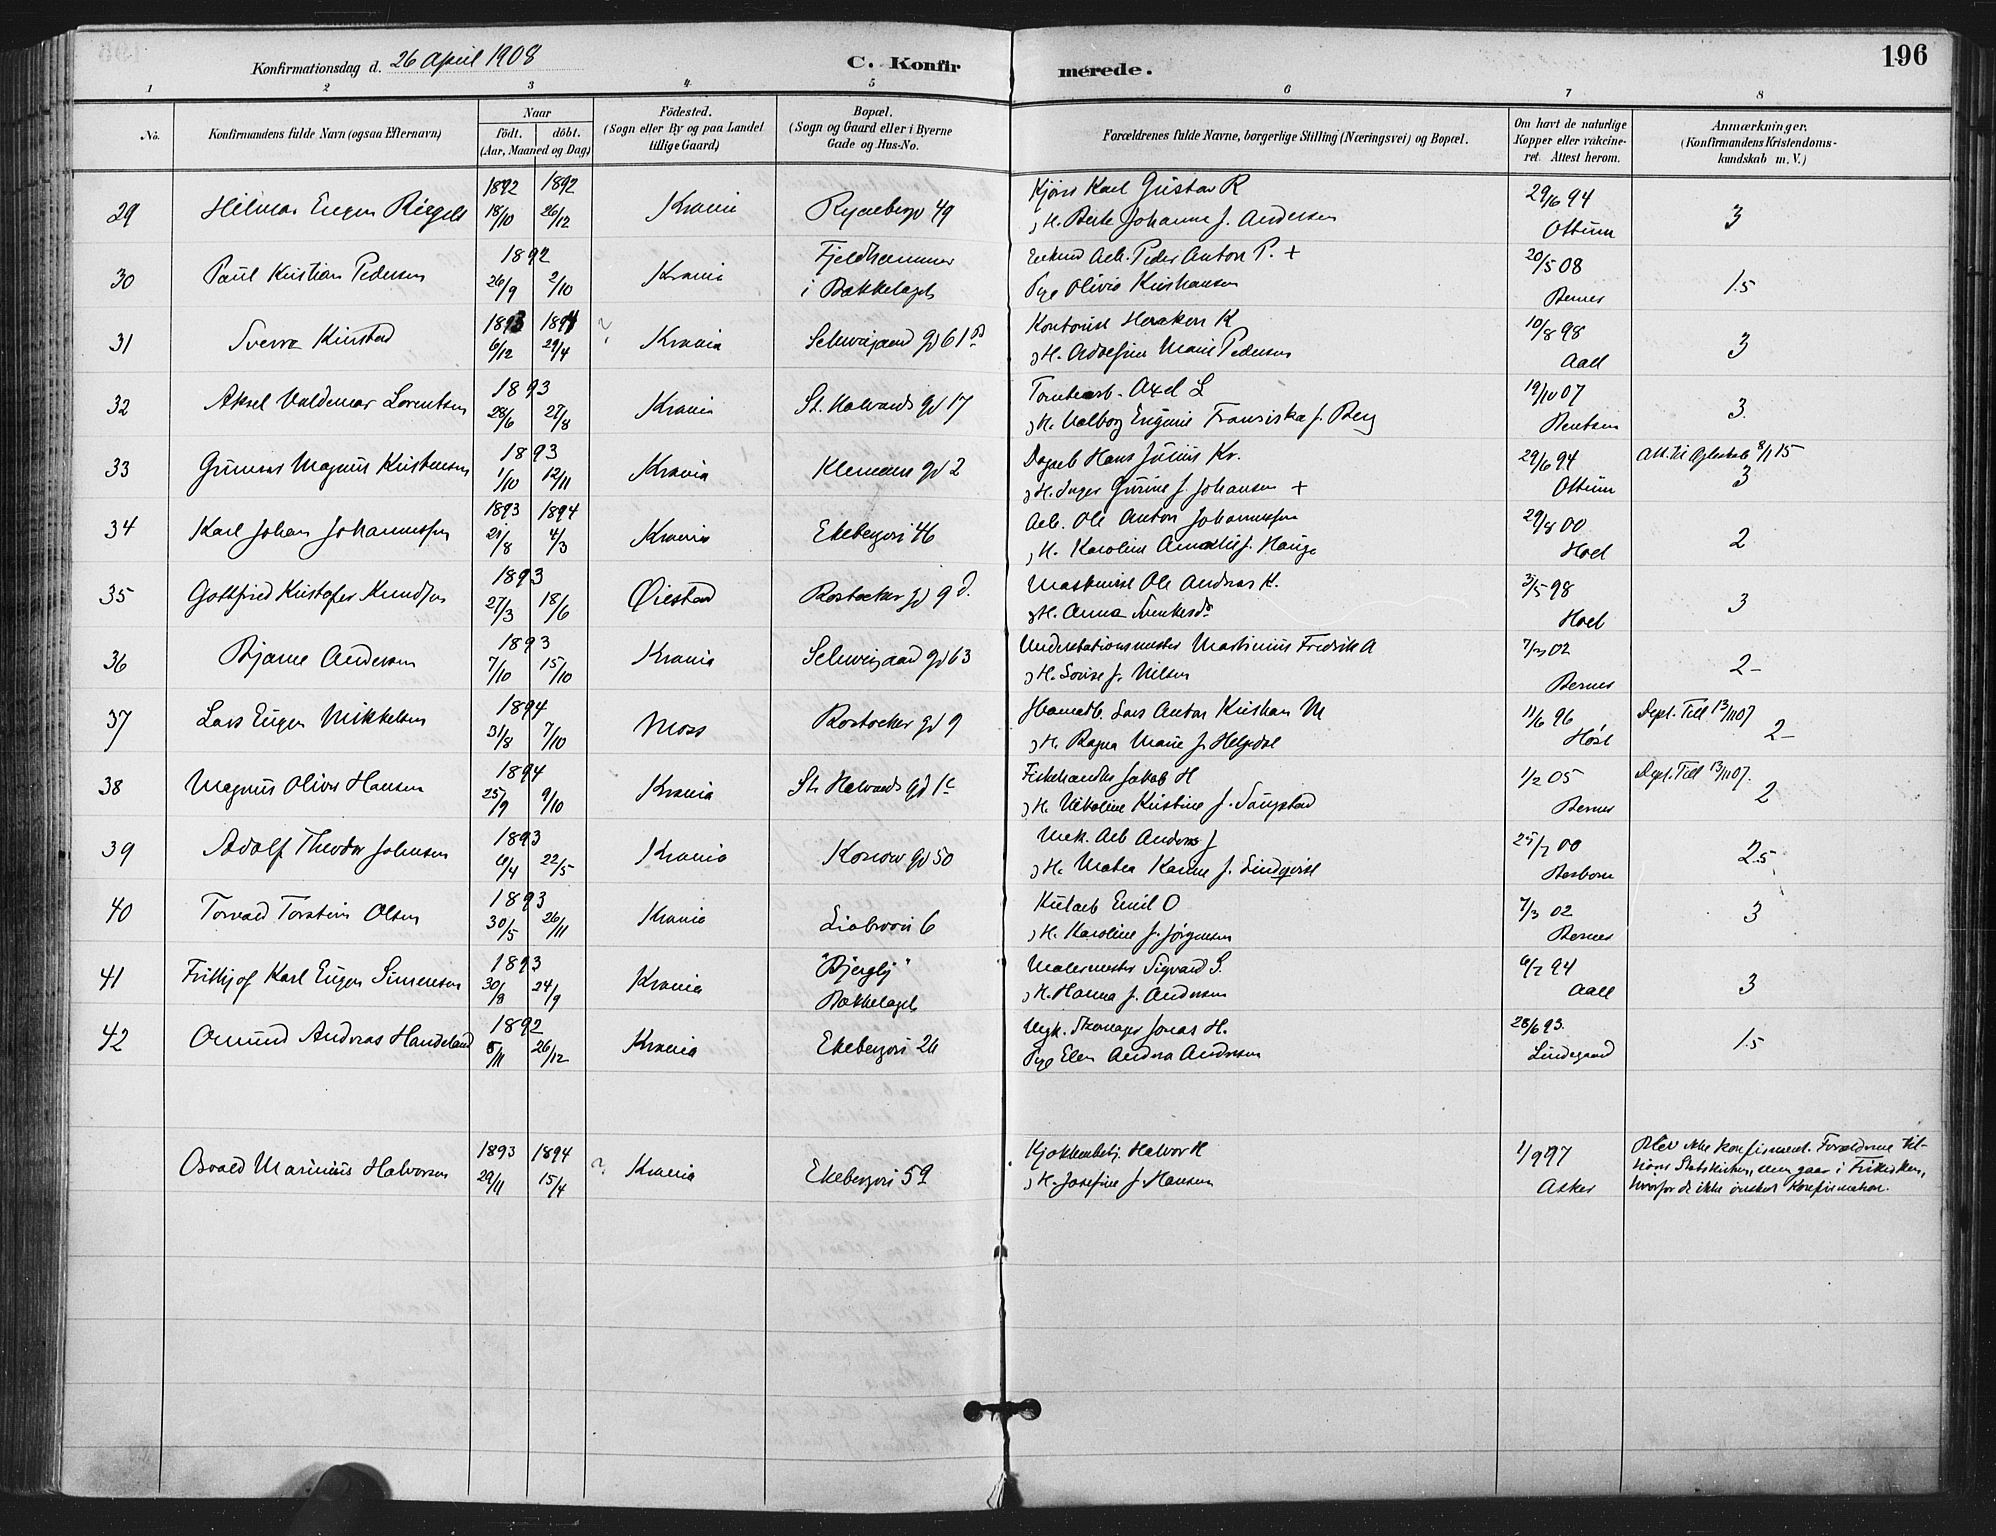 Konfirmationsdag d. 26 April 1908
C. Konfirmerede.
196
1 2 3 4 5 6 7 8
No. Konfirmandens fulde Navn (ogsaa Efternavn) Naar födt. döbt. (Aar, Maaned og Dag) Födested. (Sogn eller By og paa Landet tillige Gaard) Bopæl. (Sogn og Gaard eller i Byerne Gade og Hus-No. Forældrenes fulde Navne, borgerlige Stilling (Næringsvei) og Bopæl. Om havt de naturlige Kopper eller vakcineret. Attest herom. Anmærkninger. (Konfirmandens Kristendomskundskab m. V.)
1892 1892 Karl Gustav R 29/6 94
29 Hilmar Eugen 18/10 26/12 Krania 49 Johanne f. Andersen Ottum 3
1892 Fjeldhammer Peder Anton P. + 20/5 08
30 Paul Kristian Pedersen 26/9 2/10 Krania i Bækkelaget Pige Olivia Kristiansen Bernes 1.5
1893 1894 Kontorist Haakon K 10/8 98
31 Sverre 6/12 29/4 Krania Schweigaard gd 61 H. Adolfine Marie Pedersen Aall 3
1893 Axel L 19/10 07
32 Aksel Valdemar Lorentsen 28/6 27/8 Krania St. Halvards gd 17 H. Valborg Eugenie Fransiska f. Berg Bentsen 3
1893 Hans Julius Kr. 29/6 94
33 Gunnar Magnus Kristensen 1/10 12/11 Krania Klemens gd 2 H. Inger Gurine f. Johansen + Ottum 3
1893 1894 Arb. Ole Anton Johannessen 29/8 00
34 Karl Johan Johannessen 21/8 4/3 Krania Ekebergvei 46 H. Karoline f. Hauge Hoel 2
1893 Maskinist Ole Andreas K. 3/5 98
35 Gottfred Kristofer Knudsen 27/3 18/6 Øiestad Rostocker gd 9 H. Anna Hoel 3
1893 Understationsmester Martinius Fredrik A 7/3 02
36 Bjarne Andersen 7/10 15/10 Krania Schweigaard gd 63 H. Louise f. Nilsen Bernes 2-
1894 Lars Anton Kristian M 11/6 96 Dept. Till 13/11 07
37 Lars Eugen Mikkelsen 31/8 7/10 Moss Rostocker gd 9 H. Ragna Marie f. Helgedal Høst 2-
1894 Fiskehandler Jakob H 1/2 05 Dept. Till 13/11 07.
38 Magnus Oliver Hansen 25/9 9/10 Krania St. Halvards gd 1c H. Nikoline Kristine f. Bernes 2
1893 Mek. Arb Anders J 00
39 Adolf Theodor Johnsen 22/5 Krania gd 50 H. Karine f. Lindqvist 2.5
1893 Emil O 7/3 02
40 Torvald Torstein Olsen 30/5 26/11 Krania Liabrovei 6 H. Karoline f. Jørgensen Bernes 3
1893 "Bjergly" Malermester Sigvard S. 94
41 Frithjof Karl Eugen Simensen 30/8 24/9 Krania Bækkelaget H. Hanna f. Andersen Aall 3
1892 Skomager Jonas H. 28/6 93.
42 Andreas Handeland 5/11 26/12 Krania Ekebergvei 26 Pige Elen Andrea Andersen Lindegaard 1.5
1893 1894 Halvor H 97 Blev ikke konfirmeret. Forældrene til-
Osvald Marinius Halvorsen 29/11 15/4 Krania Ekebergvei 59 H. Josefine f. Hansen Asker hører Statskirken, men gaar i Frikirken,
hvorfor de ikke ønsket Konfirmation.